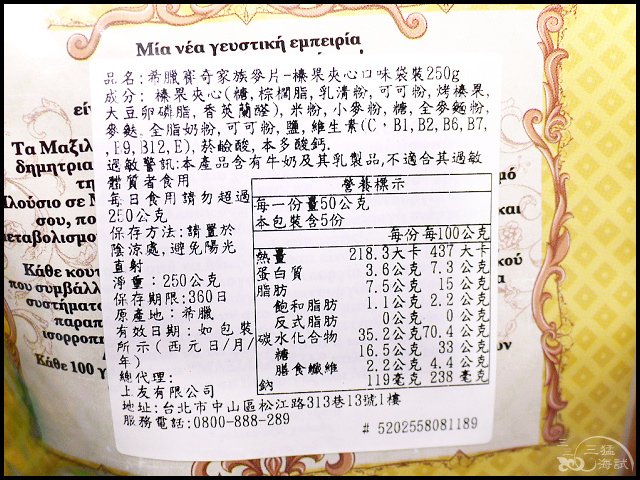 Μία νέα γευστική εμπειρία
品名:希臘賓奇家族麥片-榛果夾心口味袋裝250g
成分: 榛果夾心(糖,棕櫚脂,乳清粉,可可粉,烤榛果,
大豆卵磷脂,香莢蘭醛),米粉,小麥粉,糖,全麥麵粉,
麥麩,全脂奶粉,可可粉,鹽,維生素(C,B1,B2,B6,B7,
,E9,B12,E),菸鹼酸,本多酸鈣.
過敏警訊:本產品含有牛奶及其乳製品,不適合其過敏
體質者食用
每日食用請勿超過
250公克
保存方法:請置於
陰涼處,避免陽光
直射
淨重:250公克
保存期限:360日
原產地:希臘
有效日期:如包裝
所示(西元日/月/
年)
總代理:
上友有限公司
地址:台北市中山區松江路313巷13號1樓
服務電話:0800-888-289
營養標示
每一份量50公克
本包裝含5份
每份 每100公克
熱量 218.3大卡 437 大卡
蛋白質 3.6公克 7.3 公克
脂肪 7.5公克 15 公克
飽和脂肪 1.1公克 2.2 公克
反式脂肪 0公克 0 公克
碳水化合物 35.2公克 70.4公克
糖 16.5公克 33 公克
膳食纖維 2.2公克 4.4 公克
鈉 119毫克 238 毫克
# 5202558081189
είν
Τα Μαξιλ
δημητρια
τη
Πλούσιο σε Μ
σου, πο
μεταβολισμο
Κάθε κουτ
που συμβάλλ
συστήματο
παραπ
ισορροπη
Κάθε 100 γ
μό
και
κού
ουν
三三猛
海試